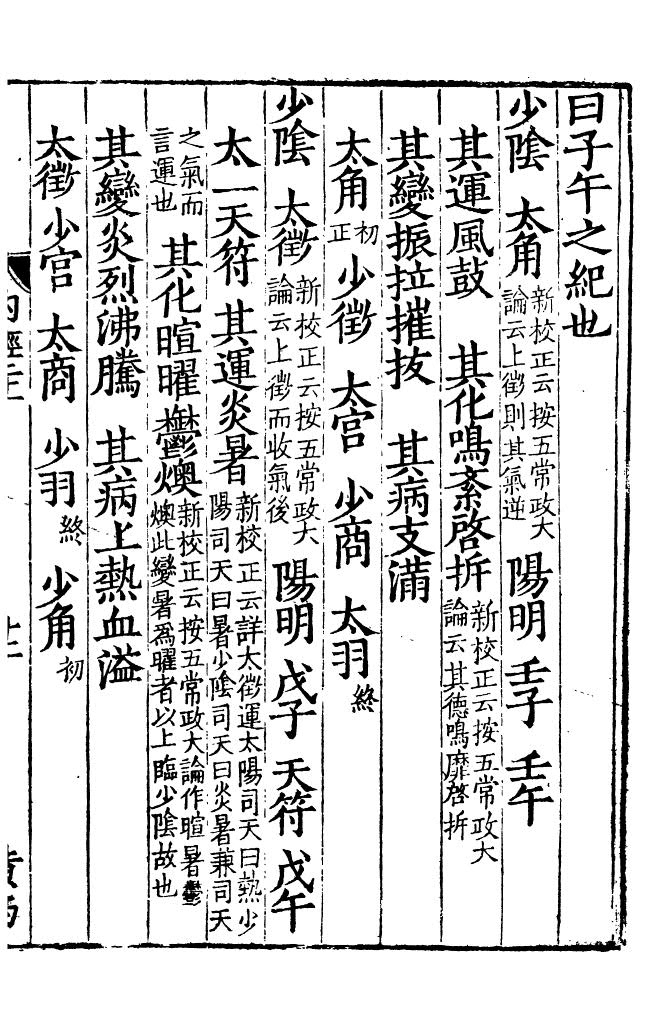 曰子午之紀也
少陰　太角　新校正云按五常政大論云上徵則其氣逆　陽明　壬子　壬午
其運風鼓　其化鳴紊啓拆　新校正云按五常政大論云其德鳴靡啓拆
其變振拉摧拔　其病支滿
太角初正　少徵　太宮　少商　太羽終
少陰　太徵　新校正云按五常政大論云上徵而收氣後　陽明　戊子　天符　戊午
太一天符　其運炎暑　新校正云詳太徵運太陽司天曰熱少陽司天曰暑少陰司天曰炎暑兼司天
之氣而言運也　其化暄曜鬱燠　新校正云按五常政大論作暄暑鬱燠此變暑爲曜者以上臨少陰故也
其變炎烈沸騰　其病上熱血溢
太徵　少宮　太商　少羽終　少角初